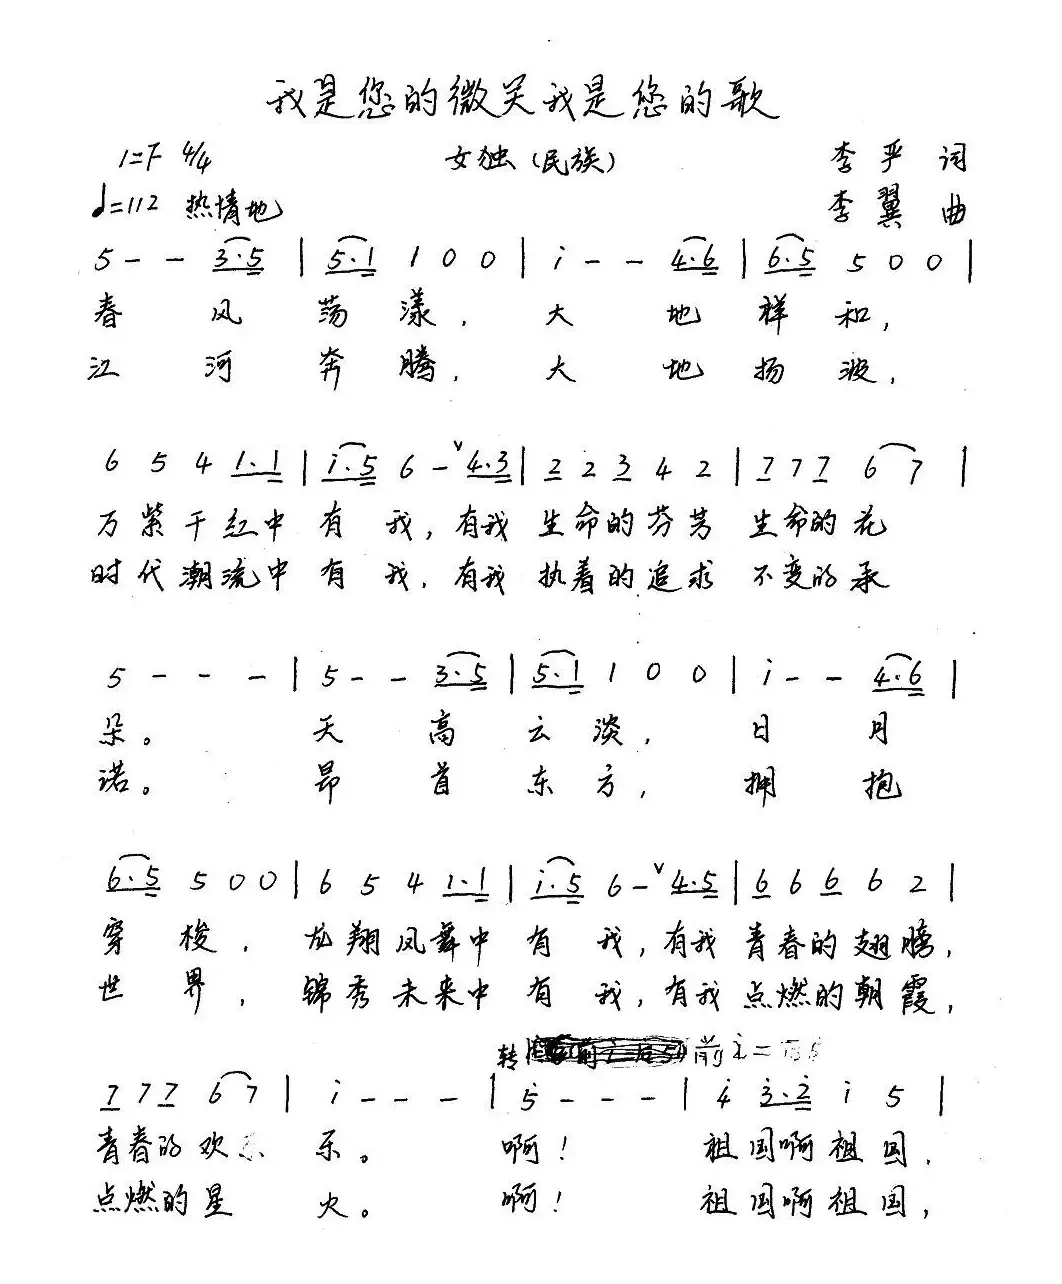 我是您的微笑我是您的歌
1=F 4/4 女独(民族) 李乎 词
♩=112 热情地 李翼 曲
5 - - 3·5 | 5·1 1 0 0 | i - - 4·6 | 6·5 5 0 0 |
春 风 荡 漾, 大 地 祥 和,
江 河 奔 腾, 大 地 扬 波,
6 5 4 1·1 | i·5 6 - ∨ 4·3 | 2 2 3 4 2 | 7 7 7 6 7 |
万紫千红中 有 我, 有我 生命的芬芳 生命的花
时代潮流中 有 我, 有我 执着的追求 不变的承
5 - - - | 5 - - 3·5 | 5·1 1 0 0 | i - - 4·6 |
朵。 天 高 云 淡, 日 月
诺。 昂 首 东 方, 拥 抱
6·5 5 0 0 | 6 5 4 1·1 | i·5 6 - ∨ 4·5 | 6 6 6 6 2 |
穿 梭, 龙翔凤舞中 有 我, 有我 青春的翅膀,
世 界, 锦秀未来中 有 我, 有我 点燃的朝霞,
转 前 i =
7 7 7 6 7 | i - - - | 5 - - - | 4 3·2 i 5 |
青春的欢 乐。 啊! 祖国啊祖国,
点燃的星 火。 啊! 祖国啊祖国,